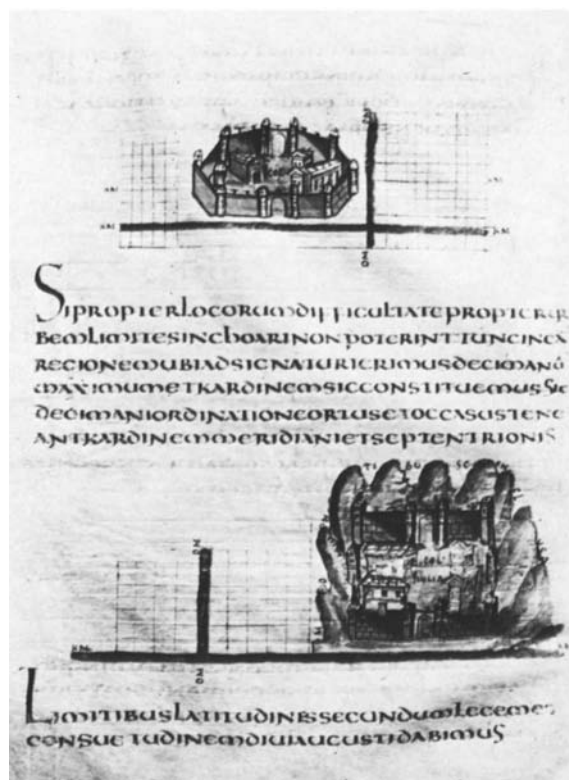 SIPROPTERLOCORUMDIFFICULTATEPROPTERUR
BEMLIMITESINCHOARINONPOTERINTTUNCINEA
REGIONEMUBIADSIGNATURIERIMUSDECIMANŪ
MAXIMUMETKARDINEMSICCONSTITUEMUSSIC
DECIMANIORDINATIONEORTUSETOCCASUSTENE
ANTKARDINEMMERIDIANIETSEPTENTRIONIS
LIMITIBUSLATITUDINESSECUNDUMLEGEMET
CONSUETUDINEMDIUIAUGUSTIDABIMUS